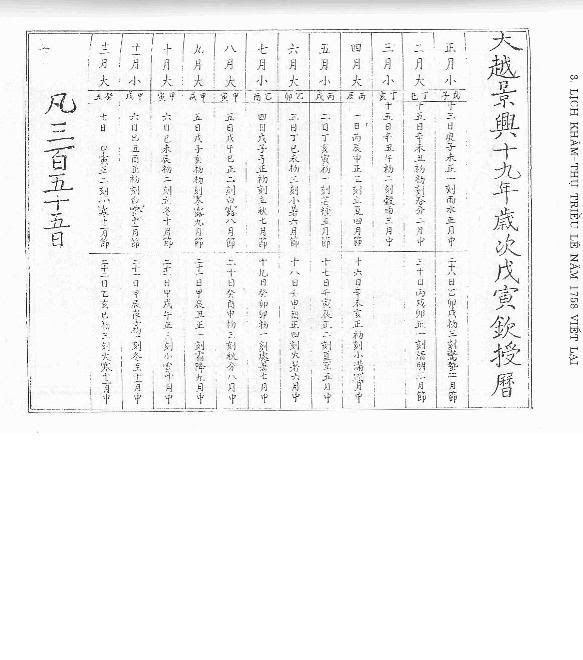 3. LỊCH KHÂM-THỤ TRIỀU LÊ NĂM 1758 VIẾT LẠI
大越景興十九年歲次戊寅欽授曆
正月小 戊子 十三日庚子未正一刻雨水正月中 二十八日乙卯戌初三刻驚蟄二月節
二月大 丁巳 十五日辛未丑初初刻春分二月中 三十日丙戌卯正一刻清明三月節
三月小 丁亥 十五日辛丑午初二刻穀雨三月中
四月大 丙辰 一日丙辰申正三刻立夏四月節 十六日辛未亥正初刻小滿四月中
五月小 丙戌 二日丁亥寅初一刻芒種五月節 十七日壬寅辰正二刻夏至五月中
六月大 乙卯 三日丁巳未初三刻小暑六月節 十八日壬申酉正四刻大暑六月中
七月小 乙酉 四日戊子子正初刻立秋七月節 十九日癸卯卯初一刻處暑七月中
八月大 甲寅 五日戊午巳正二刻白露八月節 二十日癸酉申初三刻秋分八月中
九月大 甲申 五日戊子亥初初刻寒露九月節 二十一日甲辰丑正一刻霜降九月中
十月大 甲寅 六日己未辰初二刻立冬十月節 二十一日甲戌午正三刻小雪十月中
十一月小 甲申 六日己丑酉正初刻大雪十一月節 二十一日甲辰夜子初一刻冬至十一月中
十二月大 癸丑 七日甲寅正二刻小寒十二月節 二十二日乙亥巳初三刻大寒十二月中
凡三百五十五日